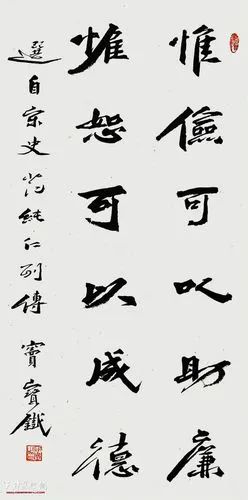 惟儉可以助廉
惟恕可以成德
選自宗史范純仁列傳 竇寶鐵